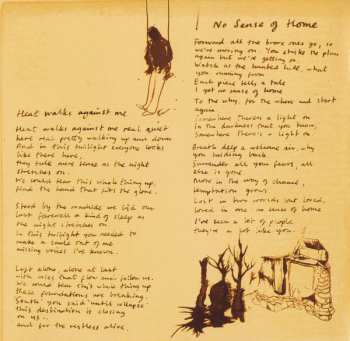 Heat walks against me
Heat walks against me real quiet
here real pretty walking up and down
And in this twilight everyone looks
like they're here,
they take more form as the night
stretches on.
We could tear this whole thing up,
find the hand that fits the glove.
Stood by the roadside we bid our
last farewell a kind of sleep as
the night stretches on
in this twilight you need to
make a smile out of me
missing voices I've known.
Left alone, alone at last
with miles that flow and follow us.
We could tear this whole thing up
these foundations are breaking.
South you said until collapse
this destination is closing
on us...
and for the restless alive.
No Sense of Home
Forward all one brave ones go, so
we're moving on. You shake the plans
again but we're getting on.
Watch as the hunted kill, what
you running from
Each piece tells a tale
I got no sense of home
To the why, for the where and start
again
Somewhere there's a light on
in the darkness that you know,
Somewhere there's a light on
Breath deep a welcome air, why
you holding back.
Surrender all your fears, all
else is gone
Move in the way of chance,
temptation grows
Lost in two worlds but loved,
loved in one no sense of home
I've seen a lot of people
they're a lot like you.